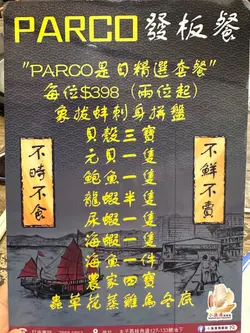 PARCO 發板餐
"PARCO是日精選套餐"
每位$398（兩位起）
象拔蚌刺身拼盤
貝殼三寶
元貝一隻
鮑魚一隻
龍蝦半隻
尿蝦一隻
海蝦一隻
海魚一件
農家四寶
蟲草花蒸雞烏冬底
不時不食
不鮮不賣